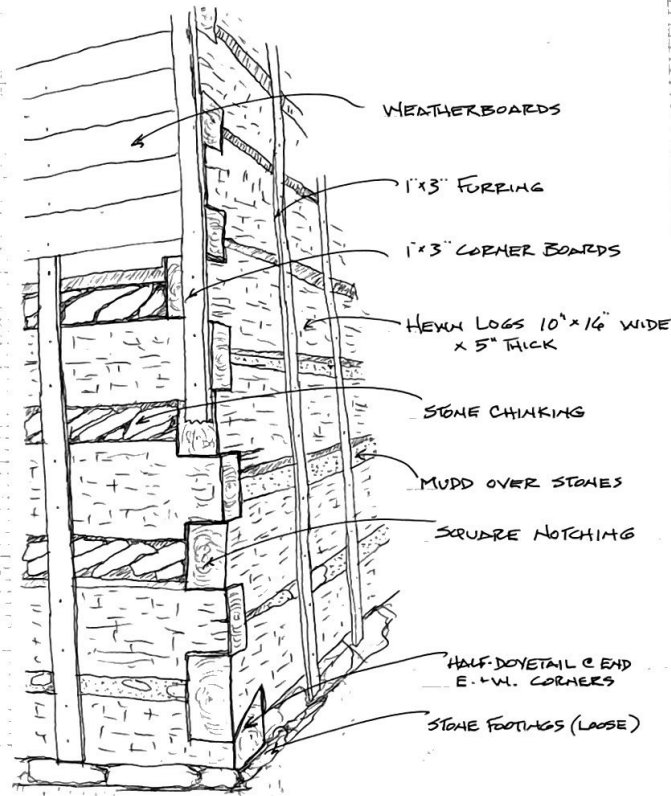 WEATHERBOARDS
1"x3" FURRING
1"x3" CORNER BOARDS
HEWN LOGS 10"x16" WIDE
x 5" THICK
STONE CHINKING
MUDD OVER STONES
SQUARE NOTCHING
HALF-DOVETAIL @ END
E.+W. CORNERS
STONE FOOTINGS (LOOSE)